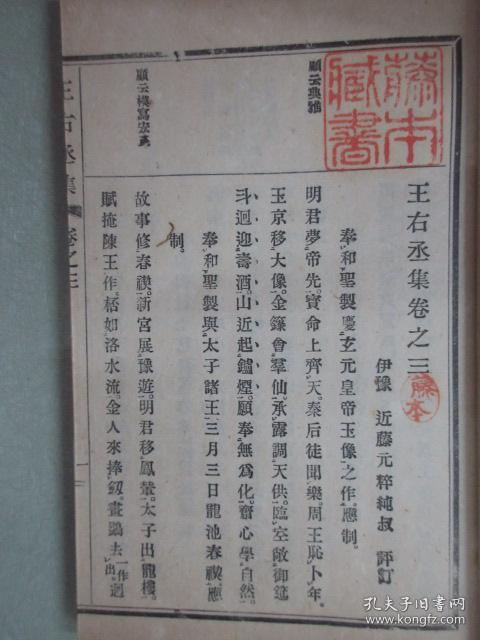 藤本
藏書
顧云典雅
顧云模寫宏亮
王右丞集卷之三
藤本
伊豫 近藤元粹純叔 評訂
奉和聖製慶玄元皇帝玉像之作應制。
明君夢帝先。寶命上齊天。秦后徒聞樂。周王恥卜年。
玉京移大像。金籙會羣仙。承露調天供。臨空敞御筵。
斗迴迎壽酒。山近起鑪煙。願奉無爲化。齋心學自然。
奉和聖製與太子諸王三月三日龍池春禊應
制。
故事修春禊。新宮展豫遊。明君移鳳輦。太子出龍樓。
賦掩陳王作。桮如洛水流。金人來捧劒。畫鷁去一作迴出。
王右丞集 卷之三
一
孔夫子旧书网
book.kongfz.com